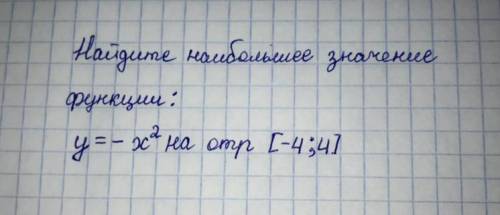 Найдите наибольшее значение
функции:
y = - x² на отр [-4;4]